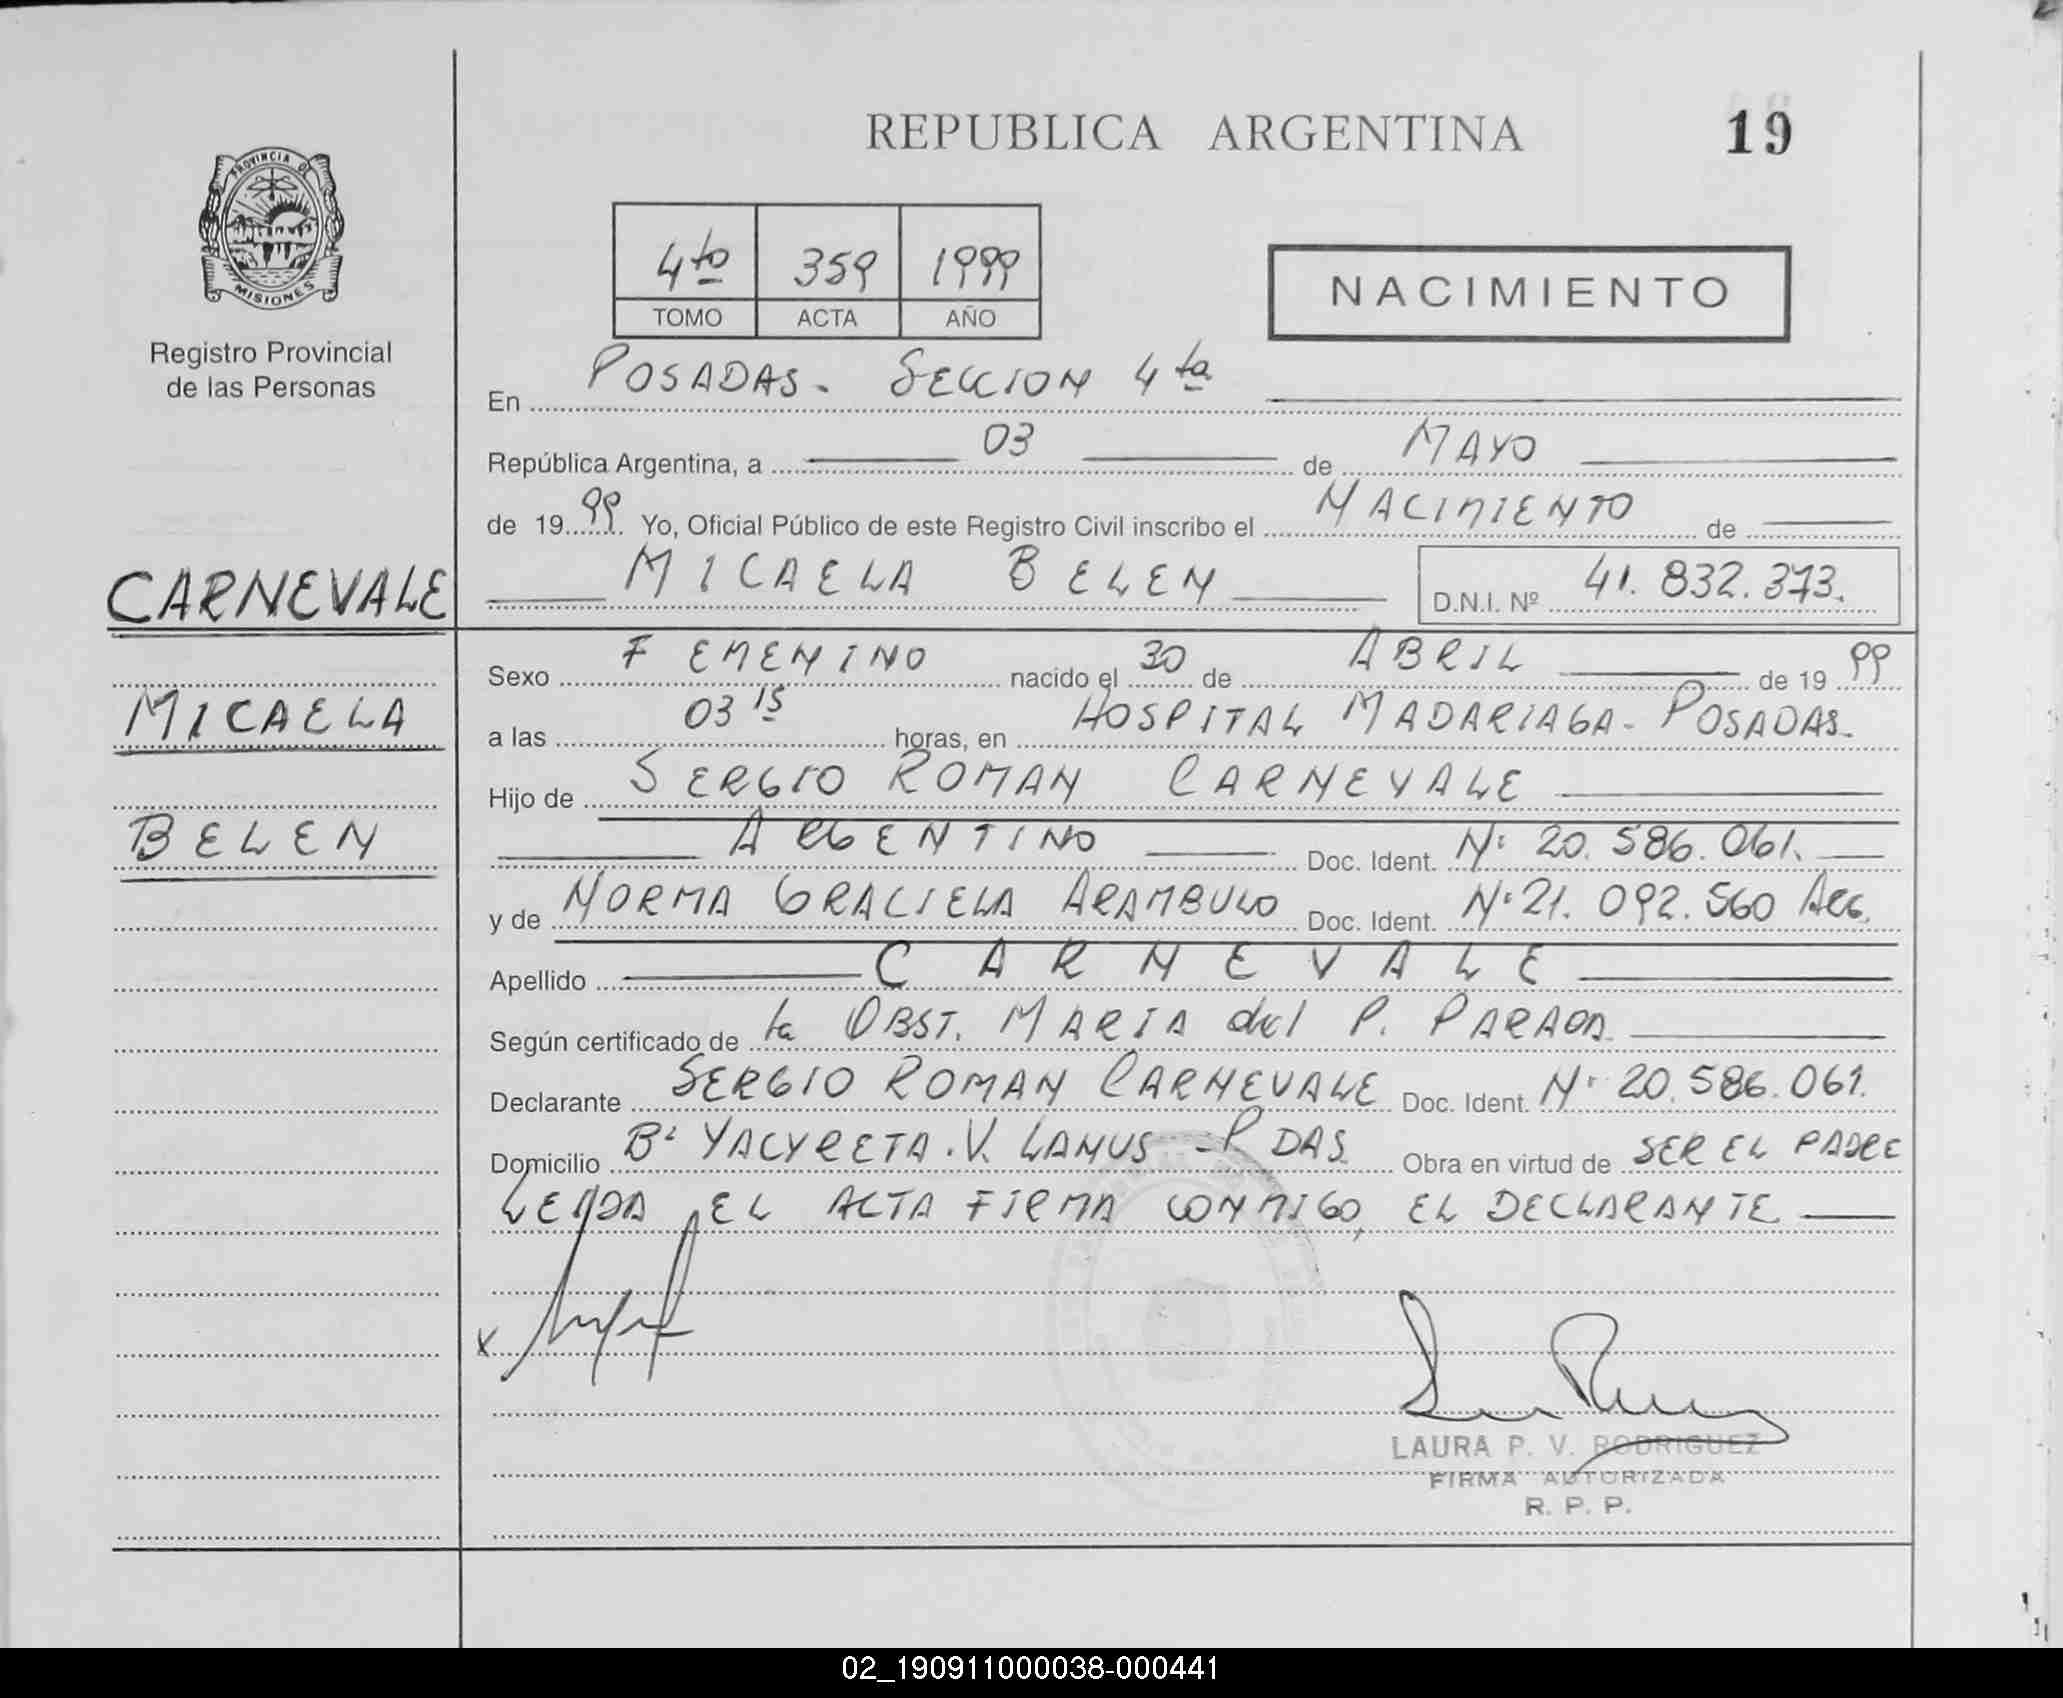 REPUBLICA ARGENTINA 19
PROVINCIA DE
MISIONES
Registro Provincial
de las Personas
4to 359 1999
TOMO ACTA AÑO
NACIMIENTO
En POSADAS - SECCION 4ta
República Argentina, a 03 de MAYO
de 1999 Yo, Oficial Público de este Registro Civil inscribo el NACIMIENTO de
MICAELA BELEN D.N.I. Nº 41.832.373.
CARNEVALE
MICAELA
BELEN
Sexo FEMENINO nacido el 30 de ABRIL de 1999
a las 03 15 horas, en HOSPITAL MADARIAGA - POSADAS.
Hijo de SERGIO ROMAN CARNEVALE
ARGENTINO Doc. Ident. Nº 20.586.061.
y de NORMA GRACIELA ARAMBULO Doc. Ident. Nº 21.092.560 ARG.
Apellido CARNEVALE
Según certificado de la OBST. MARIA del P. PARAOD
Declarante SERGIO ROMAN CARNEVALE Doc. Ident. Nº 20.586.061.
Domicilio Bº YACYRETA. V. LANUS - PDAS Obra en virtud de SER EL PADRE
LEIDA EL ACTA FIRMA CONMIGO, EL DECLARANTE
x
LAURA P. V. RODRIGUEZ
FIRMA AUTORIZADA
R. P. P.
02_190911000038-000441